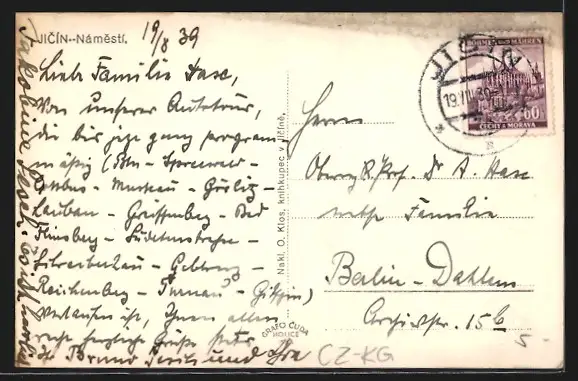 JIČÍN--Náměstí.
19/8 39
Liebe Familie Hase,
Von unserer Autotour,
die bis jetzt ganz programm
mäßig (Bln - Spreewald -
Cottbus - Muskau - Görlitz -
Lauban - Greiffenberg - Bad
Flinsberg - Sudetenstraße -
Schreiberhau - Gablonz -
Reichenberg - Turnau - Gitschin)
verlaufen ist, Ihnen allen
recht herzliche Grüße stets
Ihr Bruno und Ihre
Nakl. O. Klos, knihkupec v Jičíně.
GRAFO ČUDA
HOLICE
JIČÍN
19.VIII.39
BÖHMEN UND MÄHREN
60
ČECHY A MORAVA
Herrn
Oberreg. R. Prof. Dr. A. Hase
nebst Familie
Berlin-Dahlem
Archivstr. 15
CZ-KG